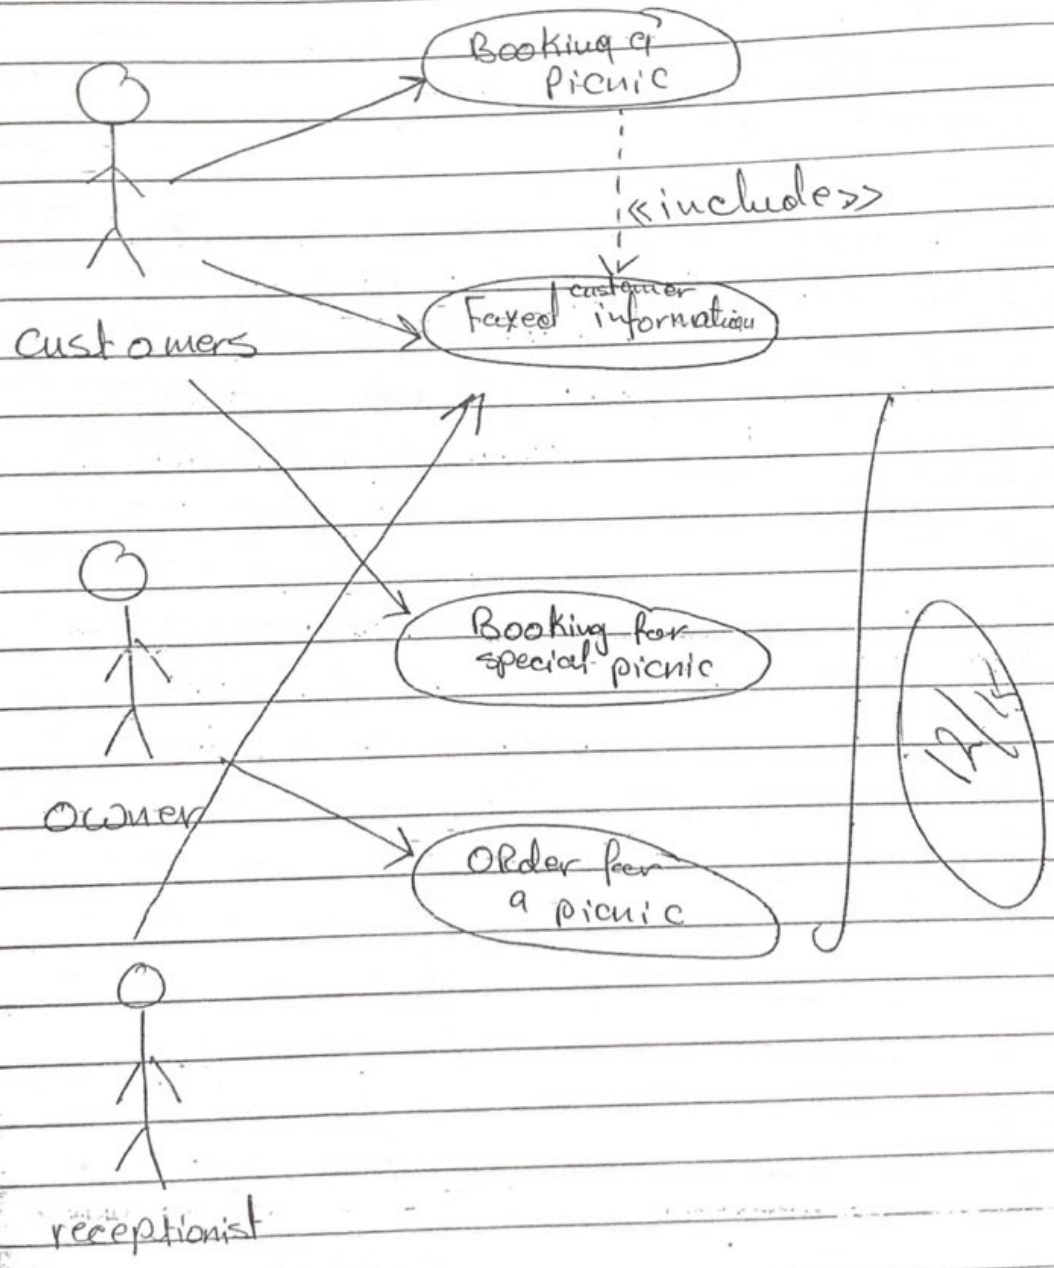 Booking a
Picnic
<<include>>
customer
Faxed information
customers
Booking for
special picnic
owner
ORder for
a picnic
12/15
receptionist